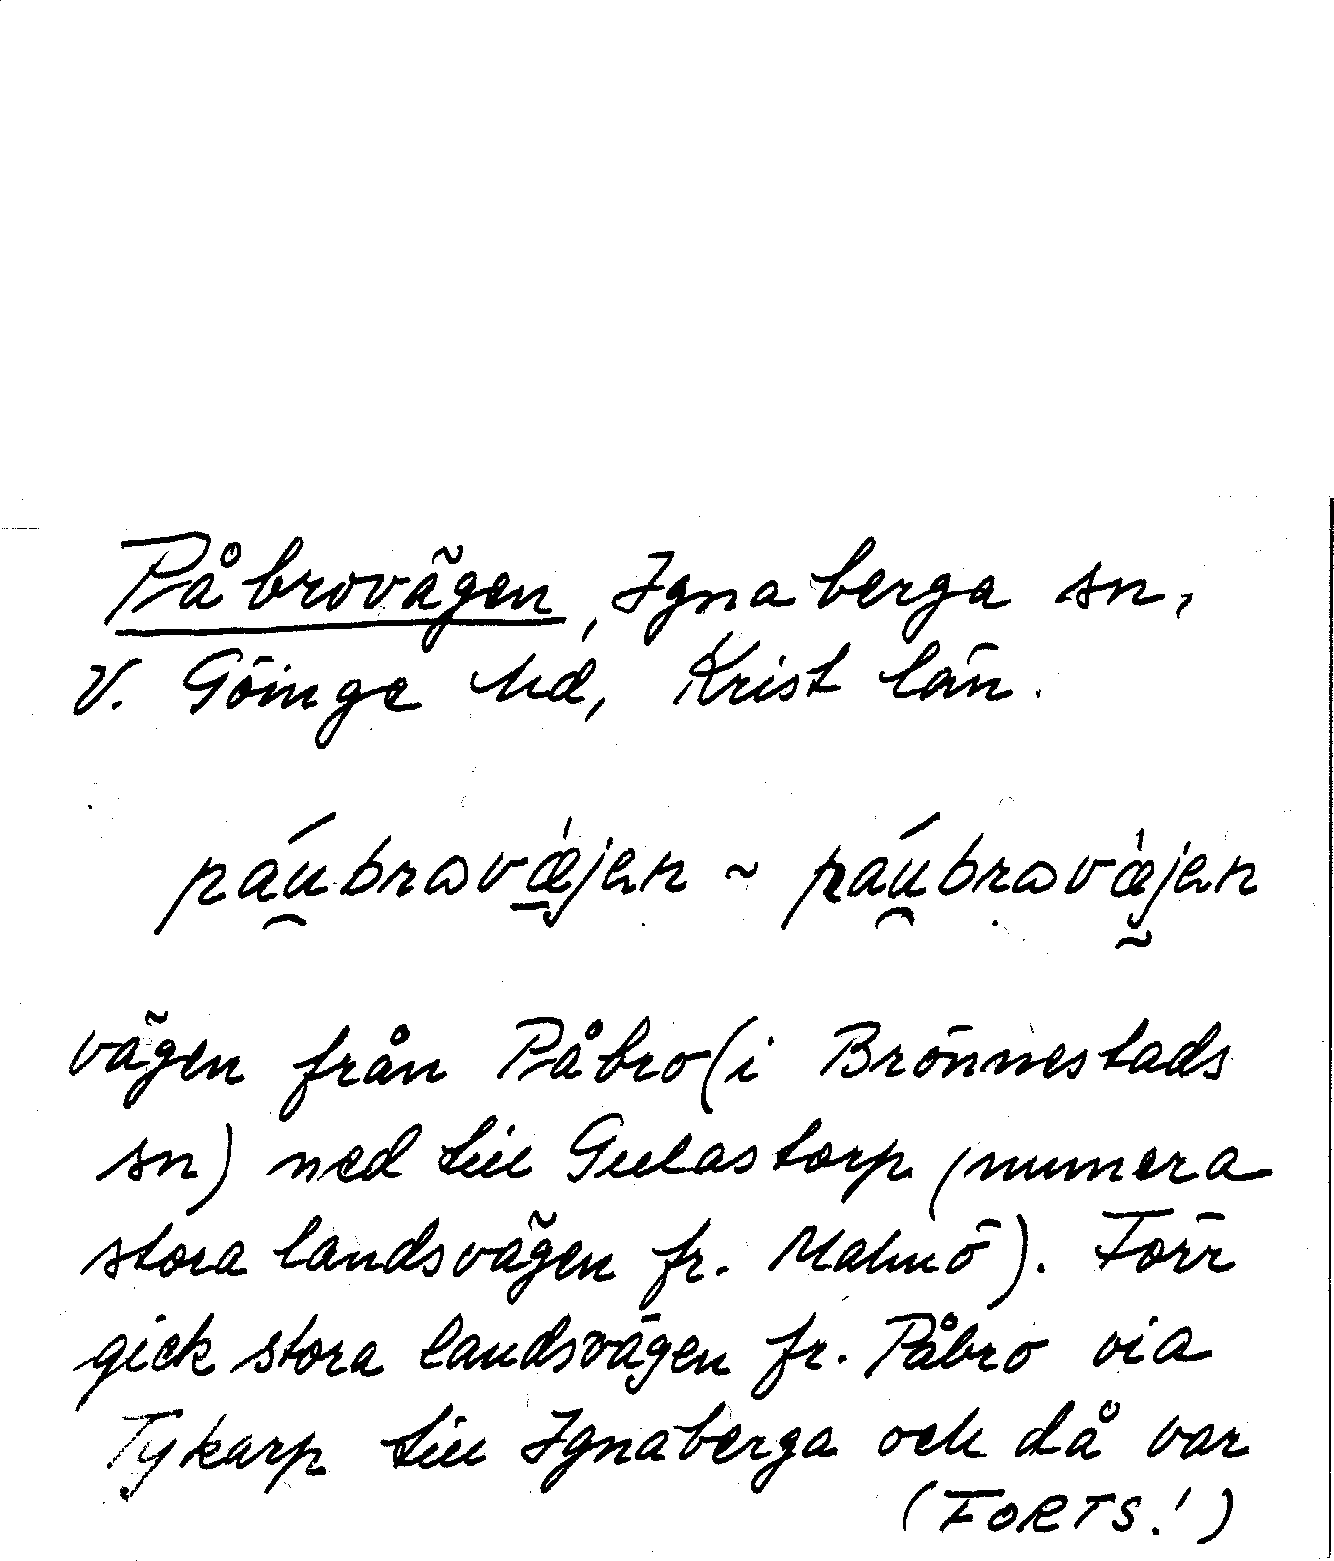 Påbrovägen, Ignaberga sn,
V. Göinge hd, Krist län.
páu̯brɷvæ̀jen ~ páu̯brɷvæ̀jen
vägen från Påbro (i Brönnestads
sn) ned till Gulastorp (numera
stora landsvägen fr. Malmö). Förr
gick stora landsvägen fr. Påbro via
Tykarp till Ignaberga och då var
(FORTS.!)